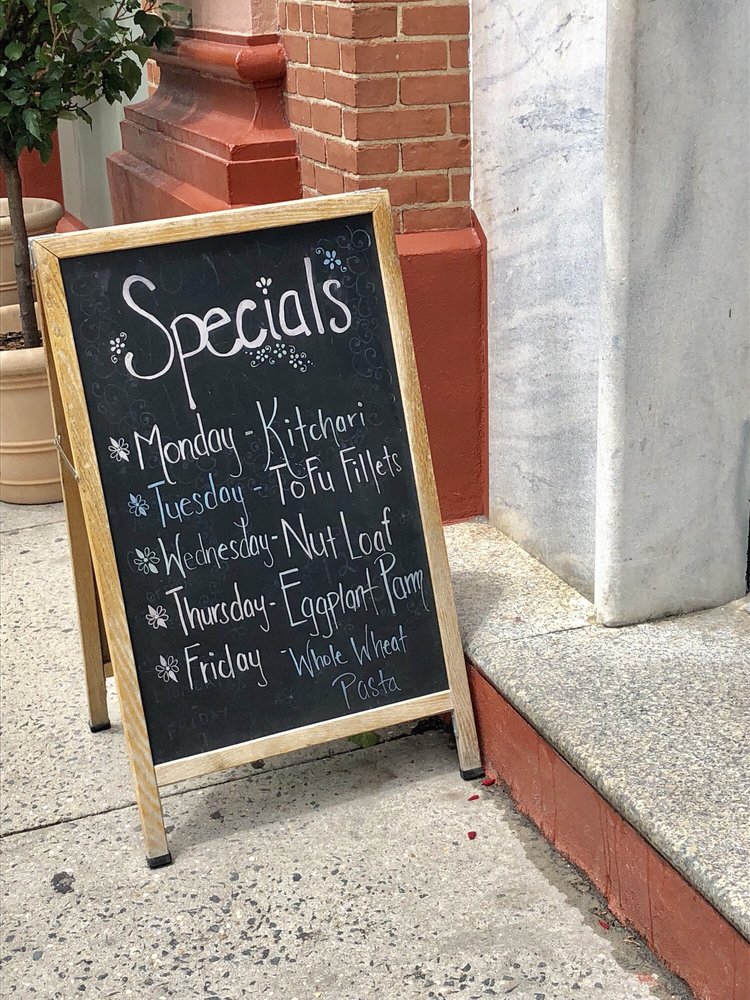 Specials
Monday - Kitchari
Tuesday - ToFu Fillets
Wednesday - Nut Loaf
Thursday - Eggplant Parm
Friday - Whole Wheat
Pasta